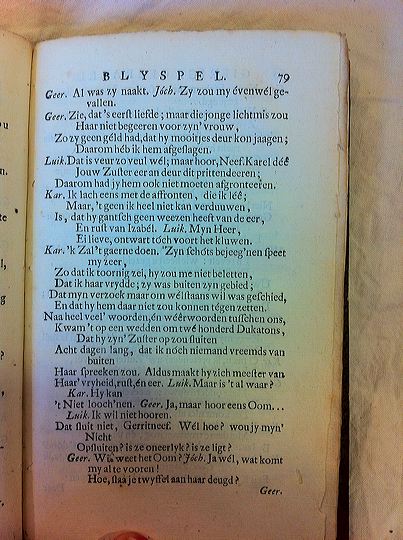 BLYSPEL. 79
Geer. Al was zy naakt. Jóch. Zy zou my évenwél ge-
vallen.
Geer. Zie, dat's eerst liefde; maar die jonge lichtmis zou
Haar niet begeeren voor zyn' vrouw,
Zo zy geen géld had, dat hy mooitjes deur kon jaagen;
Daarom héb ik hem afgeslagen.
Luik. Dat is veur zo veul wél; maar hoor, Neef. Karel déé
Jouw Zuster eer an deur dit prittendeeren;
Daarom had jy hem ook niet moeten afgronteeren.
Kar. Ik lach eens met de affronten, die ik léé;
Maar, 't geen ik heel niet kan verduuwen,
Is, dat hy gantsch geen weezen heeft van de eer,
En rust van Izabél. Luik. Myn Heer,
Ei lieve, ontwart tóch voort het kluwen.
Kar. 'k Zal 't gaerne doen. 'Zyn schóts bejeeg'nen speet
my zeer,
Zo dat ik toornig zei, hy zou me niet beletten,
Dat ik haar vrydde; zy was buiten zyn gebied;
Dat myn verzoek maar om wélstaans wil was geschied,
En dat hy hem daar niet zou konnen tégen zetten.
Naa heel veel' woorden, én wéérwoorden tusschen ons,
Kwam 't op een wedden om twé honderd Dukatons,
Dat hy zyn' Zuster op zou sluiten
Acht dagen lang, dat ik nóch niemand vreemds van
buiten
Haar spreeken zou. Aldus maakt hy zich meester van
Haar' vryheid, rust, én eer. Luik. Maar is 't al waar?
Kar. Hy kan
't Niet looch'nen. Geer. Ja, maar hoor eens Oom...
Luik. Ik wil niet hooren.
Dat sluit niet, Gerritneef. Wél hoe? wou jy myn'
Nicht
Opsluiten? is ze oneerlyk? is ze ligt?
Geer. Wat weet het Oom? Jóch. Ja wél, wat komt
my al te vooren!
Hoe, slaa je twyffel aan haar deugd?
Geer.